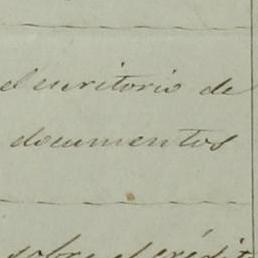 el escritorio de
documentos
sobre el crédit